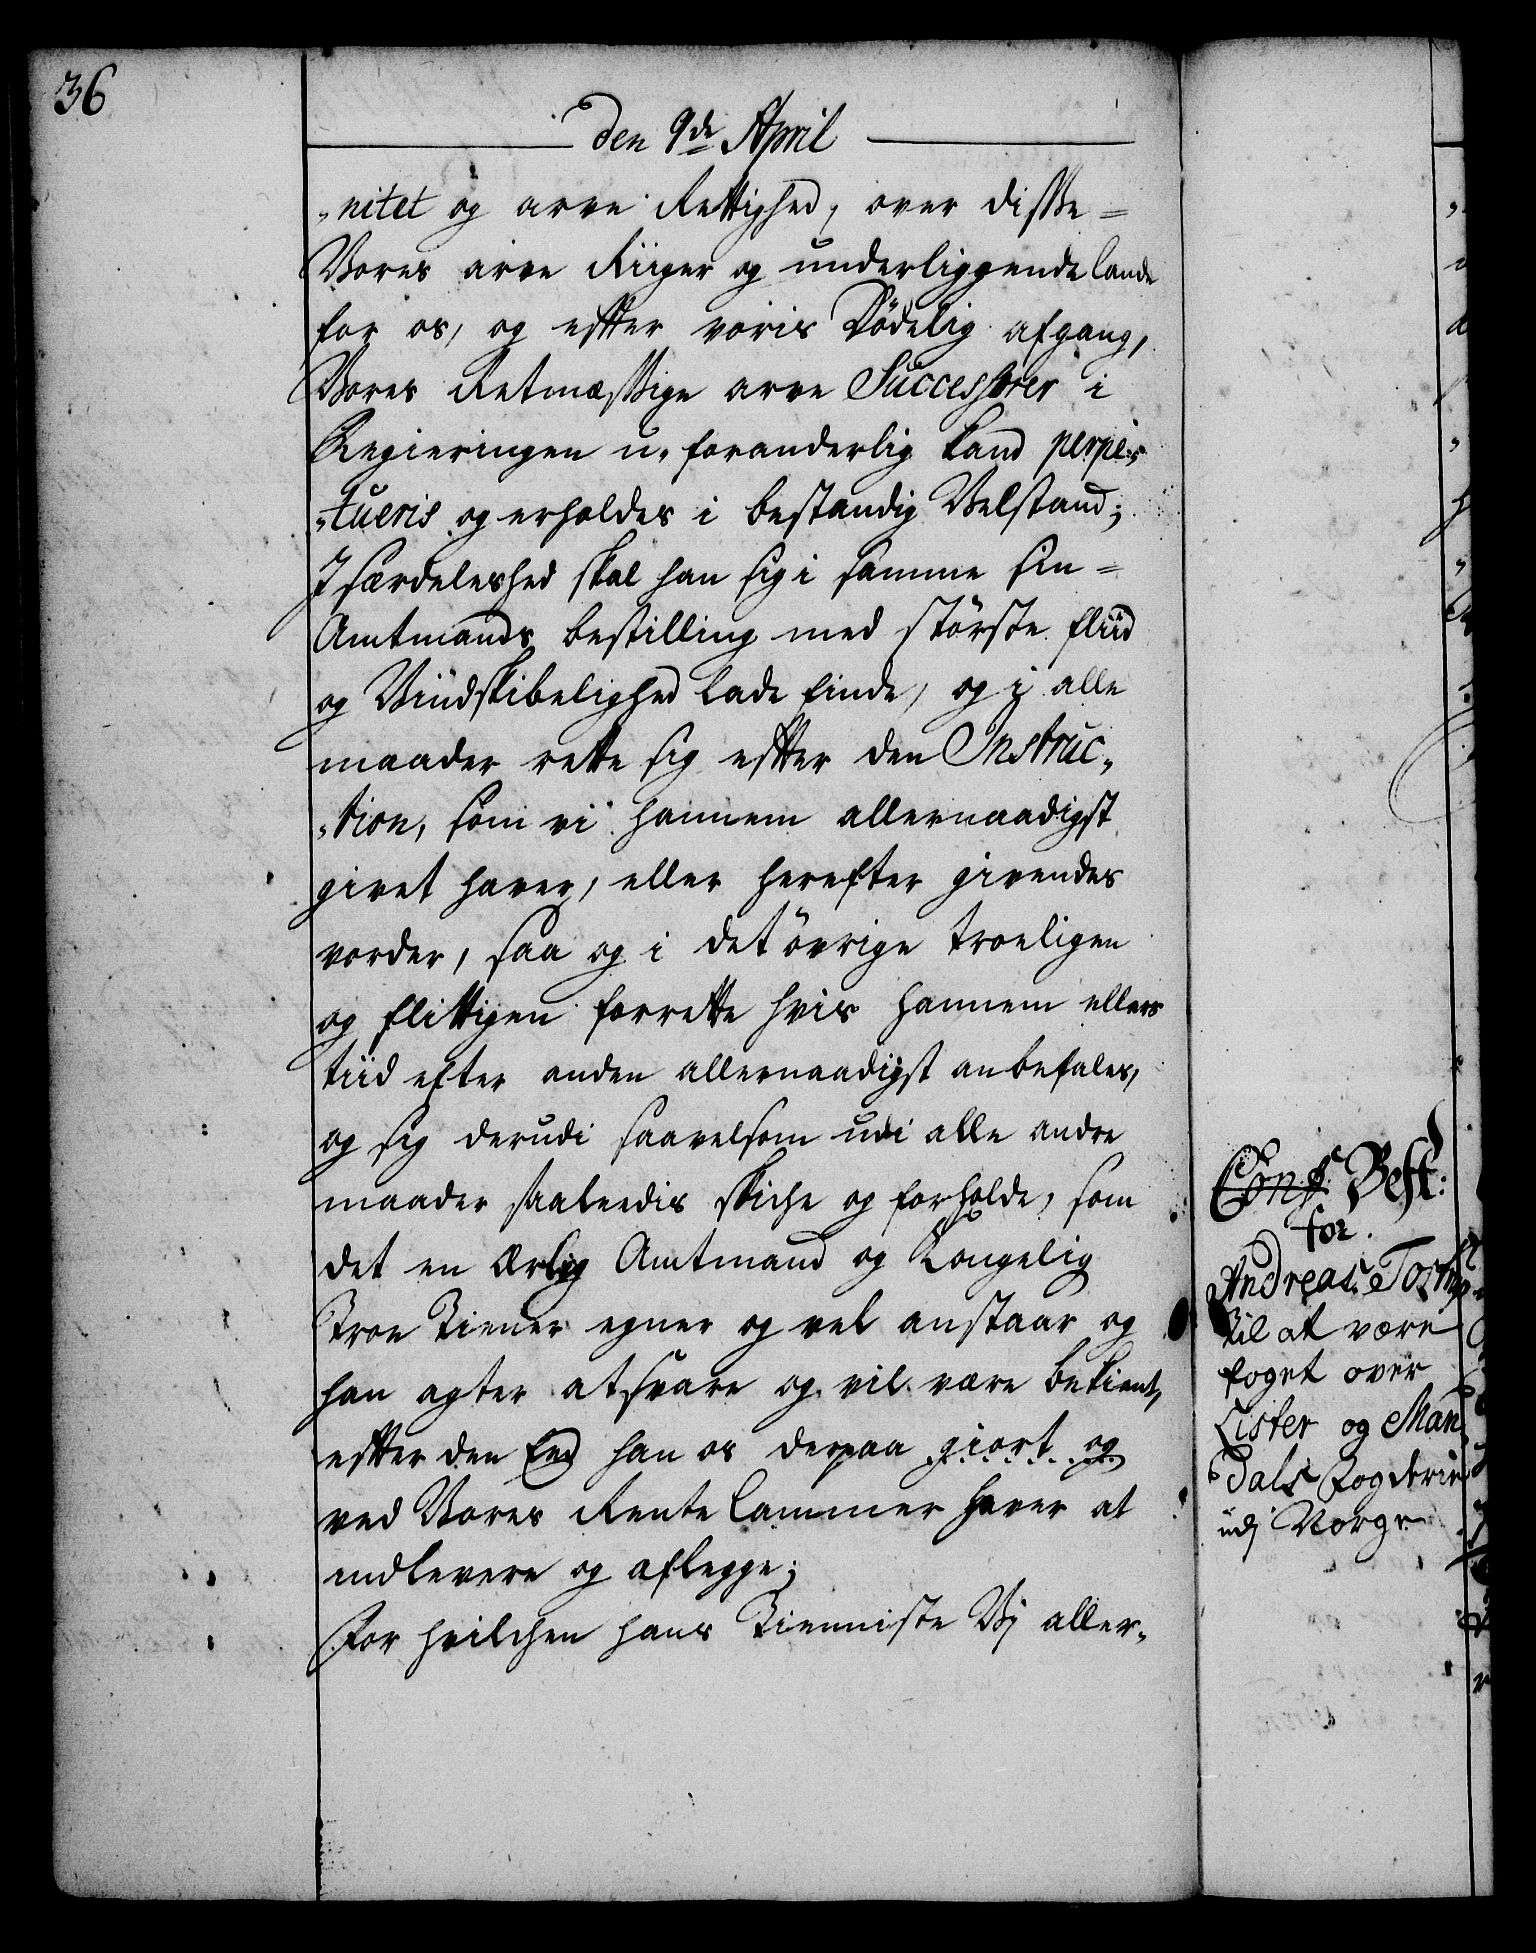 36
den 9de April
„nitet og arve Rettighed, over disse=
Vores arve Riiger og underliggende lande
for os, og effter voris Dödelig afgang,
Vores Retmæssige arve Successorer i
Regieringen u„foranderlig kand perpe„
„tueris og erholdes i bestandig Velstand;
J særdeleshed skal han sig i samme sin=
Amtmands bestilling med störste fliid
og Viindskibelighed lade finde, og i alle
maader rette sig effter den Instruc„
„tion, som vi hannem allernaadigst
givet haver, eller herefter givendes
vorder, saa og i det övrige troeligen
og flittigen forrette hvis hannem ellers
tiid efter anden allernaadigst anbefales,
og sig derudi saavelsom udi alle andre
maader saaledis skiche og forholde, som
det en ærlig Amtmand og Kongelig
Troe Tiener egner og vel anstaar og
han agter at svare og vil være bekient,
effter den Eed han os derpaa giort og
ved Vores Rente Cammer haver at
indlevere og aflegge;
For hvilchen hans Tienniste Vj aller„
Conf: Best:
for
Andreas
til at være
foget over
Lister og Man
dals Fogderie
udj Norge